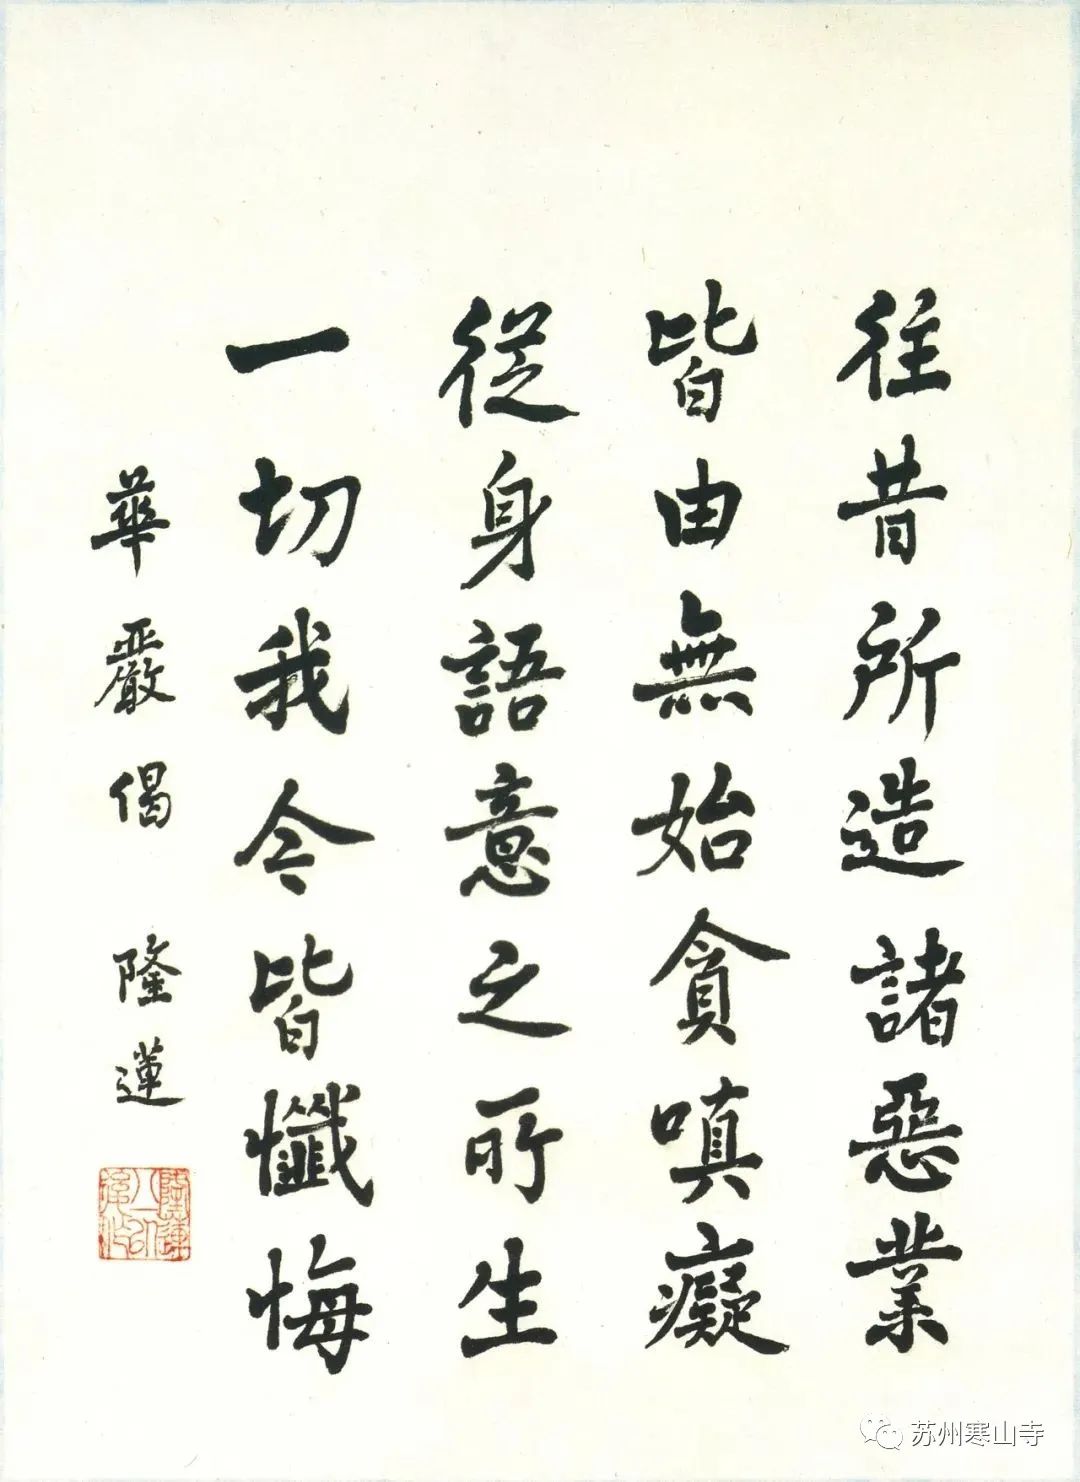 往昔所造諸惡業
皆由無始貪嗔癡
從身語意之所生
一切我今皆懺悔
華嚴偈 隆蓮
苏州寒山寺